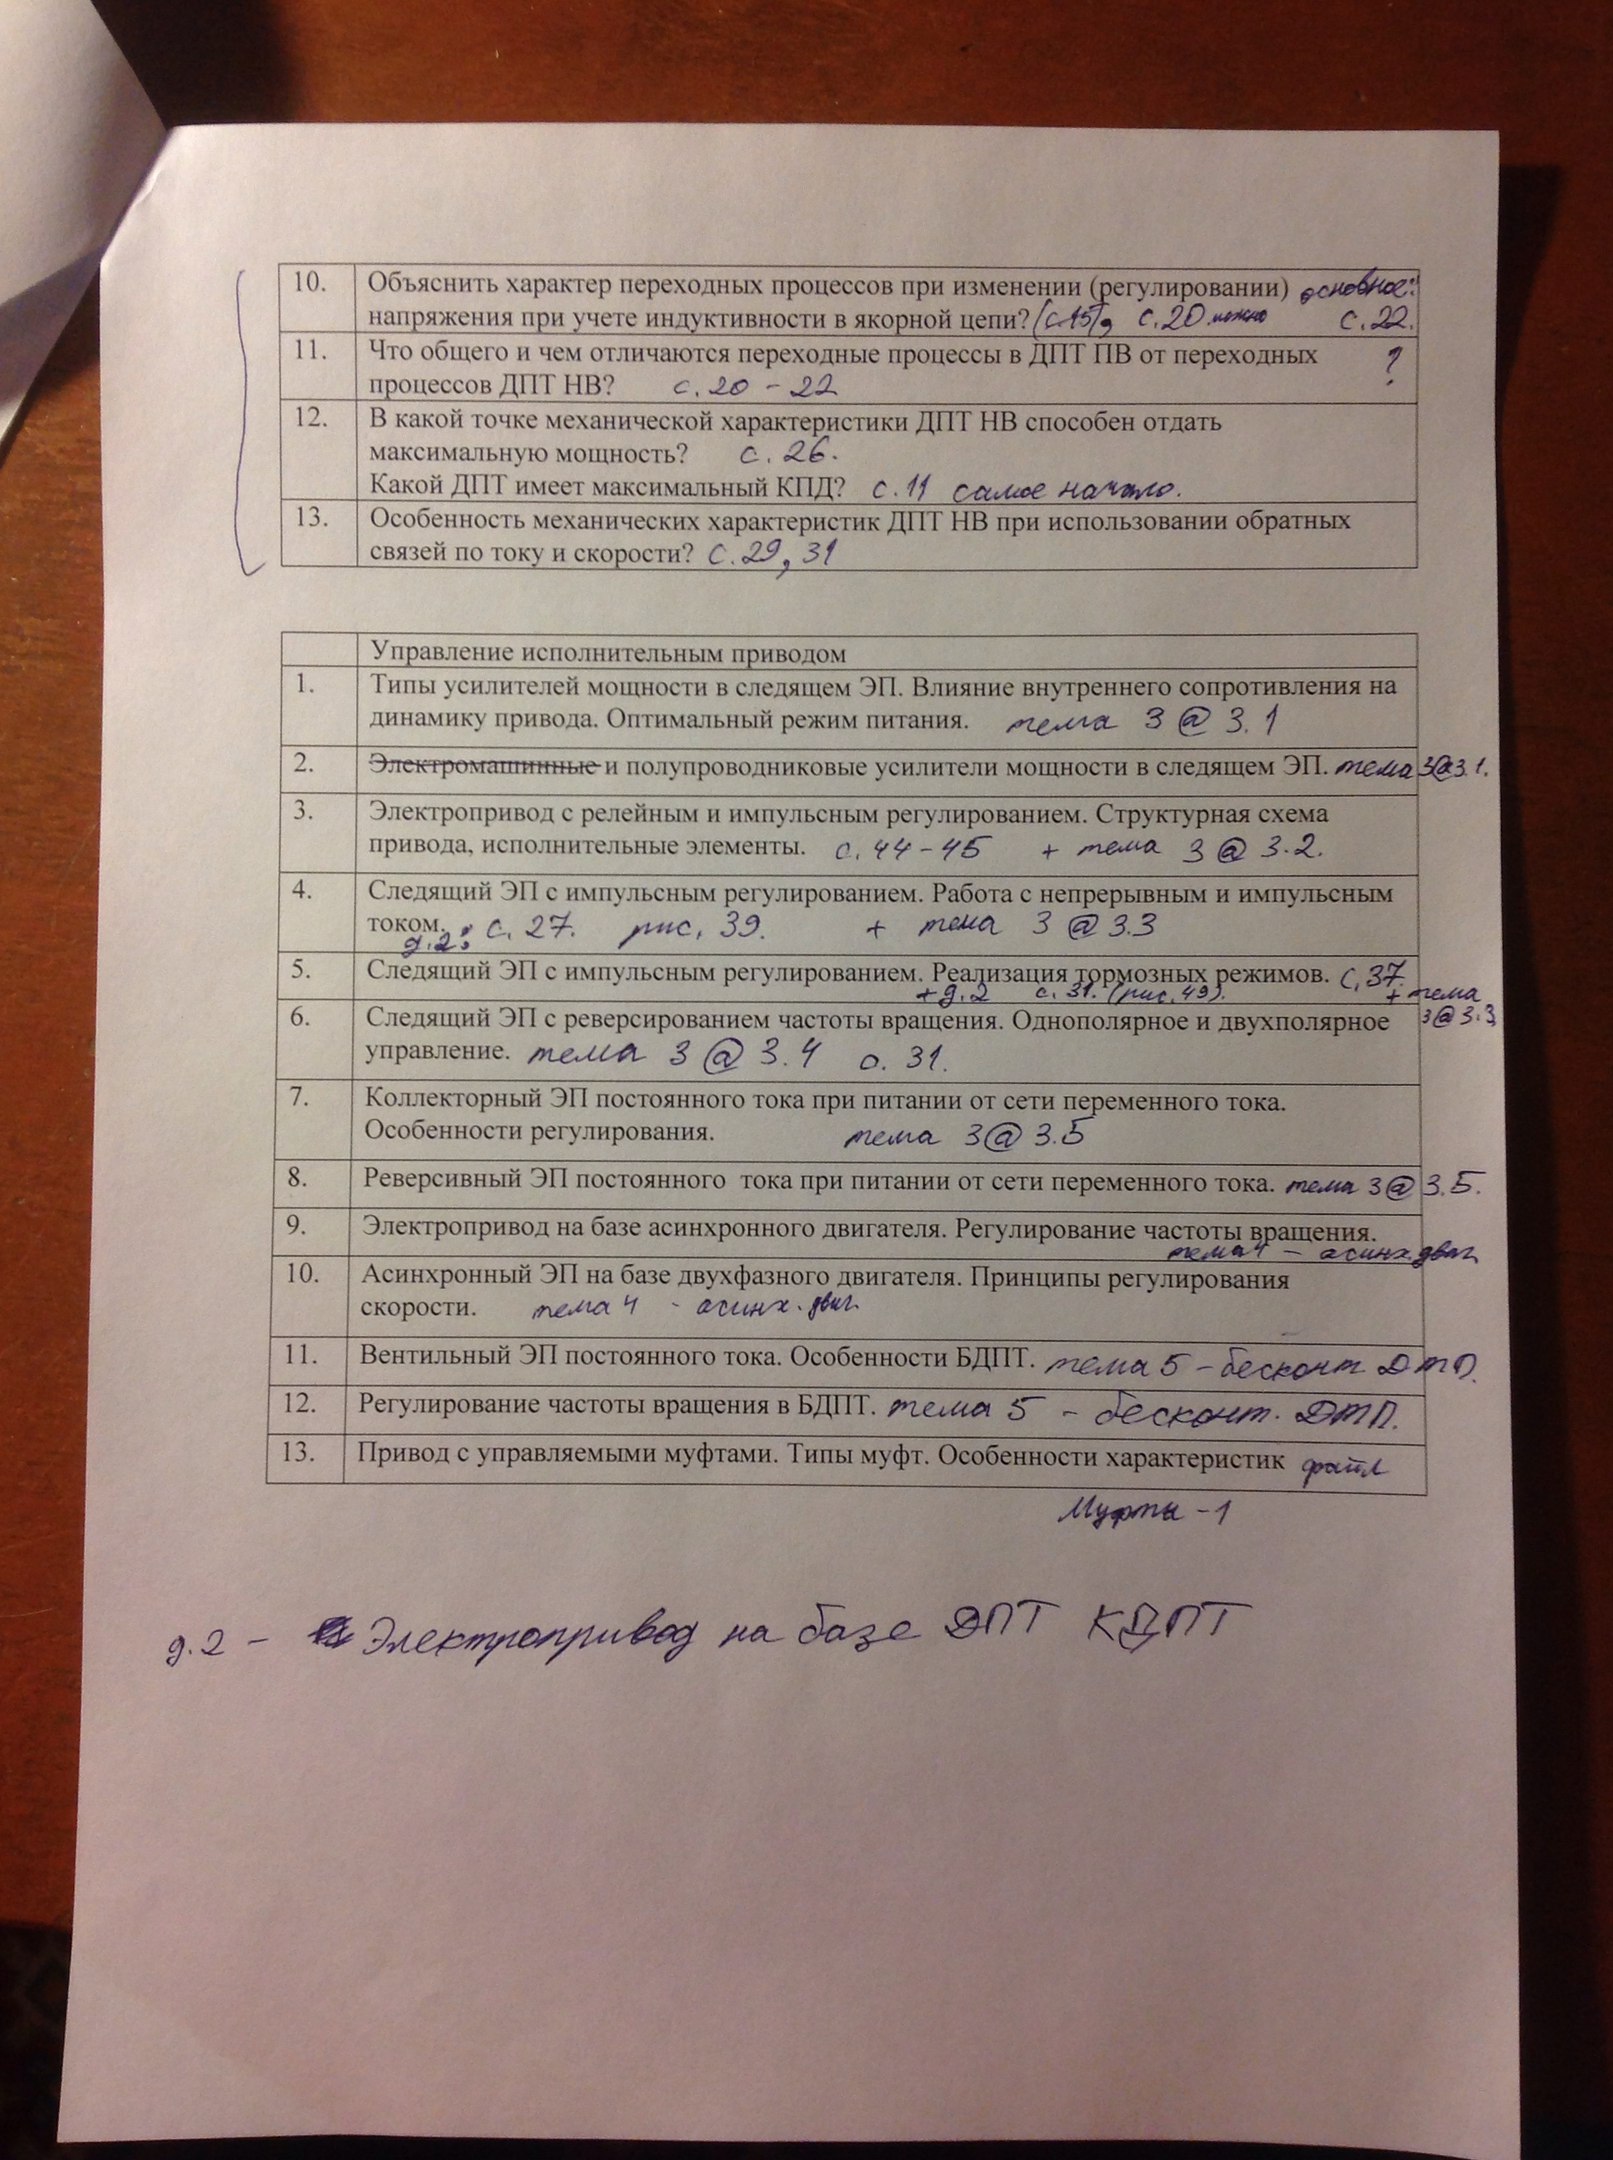 10. Объяснить характер переходных процессов при изменении (регулировании) основное:
напряжения при учете индуктивности в якорной цепи? (с.15), с.20 можно с.22.
11. Что общего и чем отличаются переходные процессы в ДПТ ПВ от переходных ?
процессов ДПТ НВ? с. 20 - 22
12. В какой точке механической характеристики ДПТ НВ способен отдать
максимальную мощность? с. 26.
Какой ДПТ имеет максимальный КПД? с. 11 самое начало.
13. Особенность механических характеристик ДПТ НВ при использовании обратных
связей по току и скорости? с. 29, 31
Управление исполнительным приводом
1. Типы усилителей мощности в следящем ЭП. Влияние внутреннего сопротивления на
динамику привода. Оптимальный режим питания. тема 3 @ 3.1
2. Электромашинные и полупроводниковые усилители мощности в следящем ЭП. тема 3@3.1.
3. Электропривод с релейным и импульсным регулированием. Структурная схема
привода, исполнительные элементы. с. 44 - 45 + тема 3 @ 3.2.
4. Следящий ЭП с импульсным регулированием. Работа с непрерывным и импульсным
током. д.2: с. 27. рис. 39. + тема 3 @ 3.3
5. Следящий ЭП с импульсным регулированием. Реализация тормозных режимов. с. 37
+ д.2 с. 31. (рис. 49). + тема
3@3.3
6. Следящий ЭП с реверсированием частоты вращения. Однополярное и двухполярное
управление. тема 3 @ 3.4 с. 31.
7. Коллекторный ЭП постоянного тока при питании от сети переменного тока.
Особенности регулирования. тема 3@ 3.5
8. Реверсивный ЭП постоянного тока при питании от сети переменного тока. тема 3@ 3.5.
9. Электропривод на базе асинхронного двигателя. Регулирование частоты вращения.
тема 4 - асинх. двиг.
10. Асинхронный ЭП на базе двухфазного двигателя. Принципы регулирования
скорости. тема 4 - асинх. двиг.
11. Вентильный ЭП постоянного тока. Особенности БДПТ. тема 5 - бесконт ДПТ.
12. Регулирование частоты вращения в БДПТ. тема 5 - бесконт. ДТП.
13. Привод с управляемыми муфтами. Типы муфт. Особенности характеристик файл
Муфты - 1
д.2 - Электропривод на базе ДПТ КДПТ